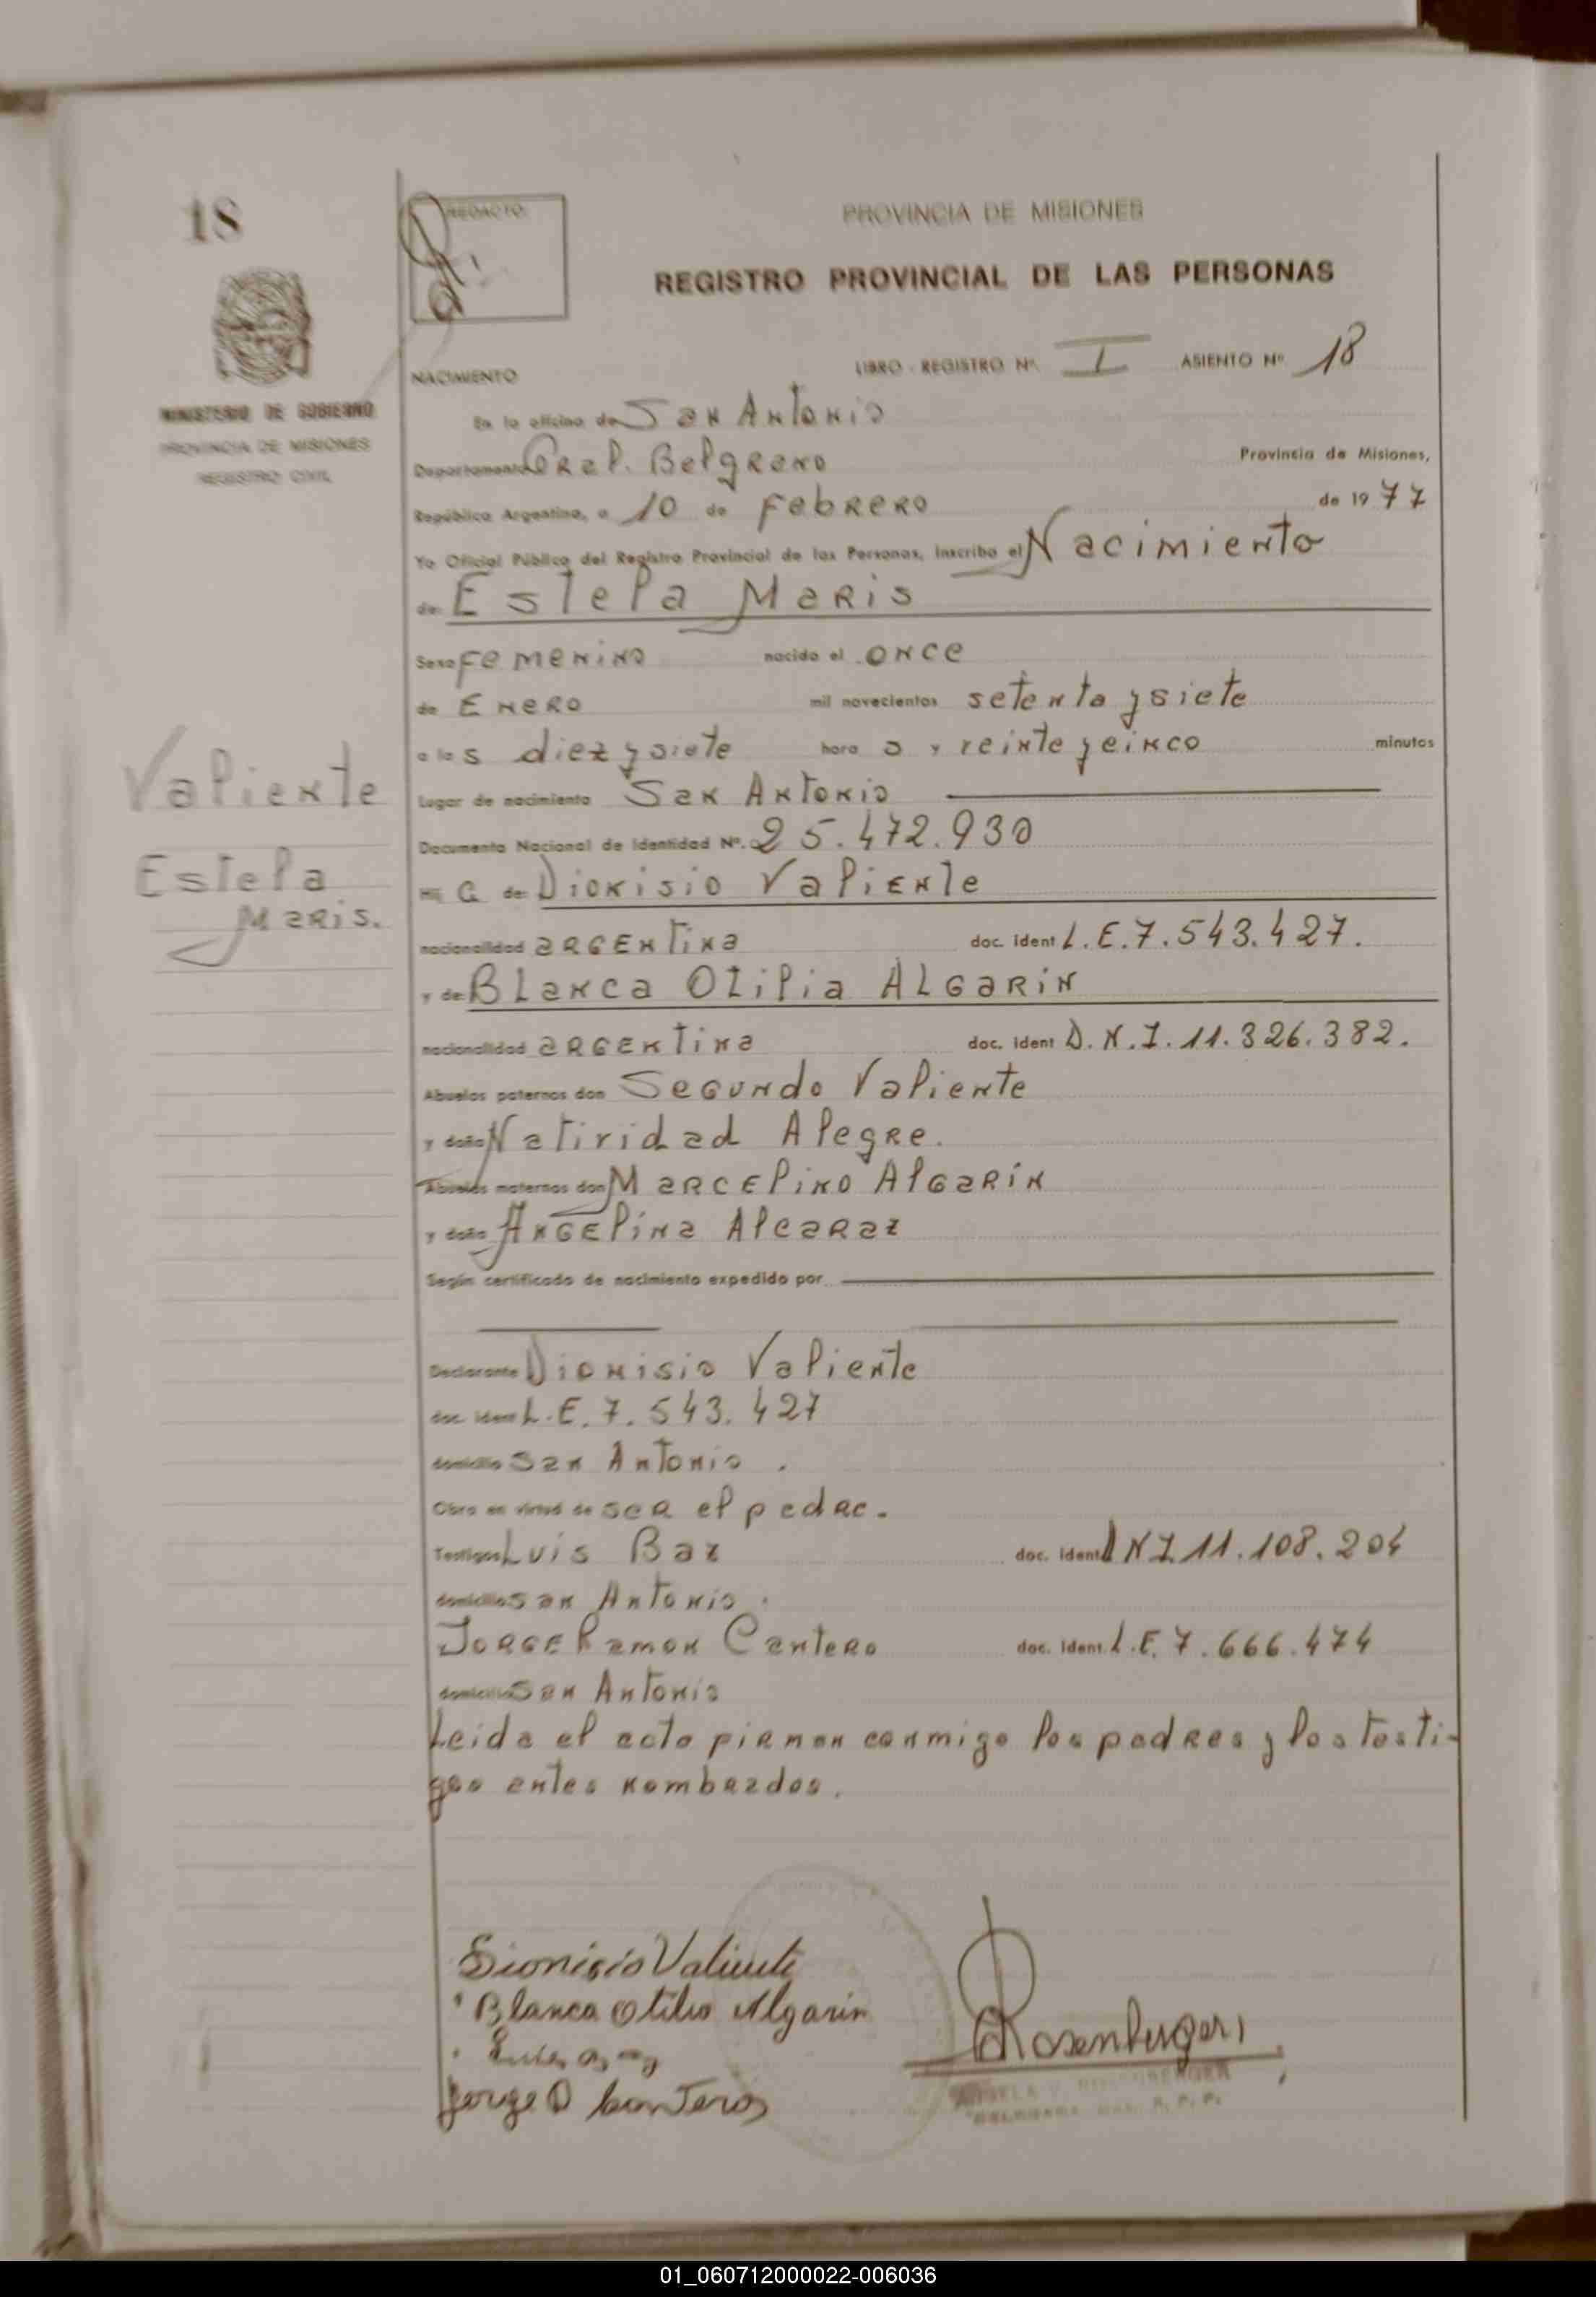 18
REDACTO:
PROVINCIA DE MISIONES
REGISTRO PROVINCIAL DE LAS PERSONAS
MINISTERIO DE GOBIERNO
PROVINCIA DE MISIONES
REGISTRO CIVIL
NACIMIENTO
LIBRO - REGISTRO Nº. I ASIENTO Nº. 18
En la oficina de San Antonio
Departamento Gral. Belgrano Provincia de Misiones,
República Argentina, a 10 de Febrero de 1977
Yo Oficial Público del Registro Provincial de las Personas, inscribo el Nacimiento
de Estela Maris
Sexo Femenino nacido el once
de Enero mil novecientos setenta y siete
a las diez y siete hora s y veinte y cinco minutos
Lugar de nacimiento San Antonio
Documento Nacional de Identidad Nº. 25.472.930
Hij a de Dionisio Valiente
nacionalidad argentina doc. ident L.E. 7.543.427.
y de Blanca Otilia ALGARIN
nacionalidad argentina doc. ident D.N.I. 11.326.382.
Abuelos paternos don Segundo Valiente
y doña Natividad Alegre.
Abuelos maternos don Marcelino Algarín
y doña Angelina Alcaraz
Según certificado de nacimiento expedido por
Declarante Dionisio Valiente
doc. ident L.E. 7.543.427
domicilio San Antonio.
Obra en virtud de ser el padre.
Testigos Luis Baz doc. ident DNI 11.108.204
domicilio San Antonio.
Jorge Ramon Cantero doc. ident. L.E. 7.666.474
domicilio San Antonio
Leida el acta firman conmigo los padres y los testi-
gos antes nombrados.
Valiente
Estela
Maris.
Dionisio Valiente
Blanca Otilia Algarin
Jorge R Canteros
Rosenberger
01_060712000022-006036